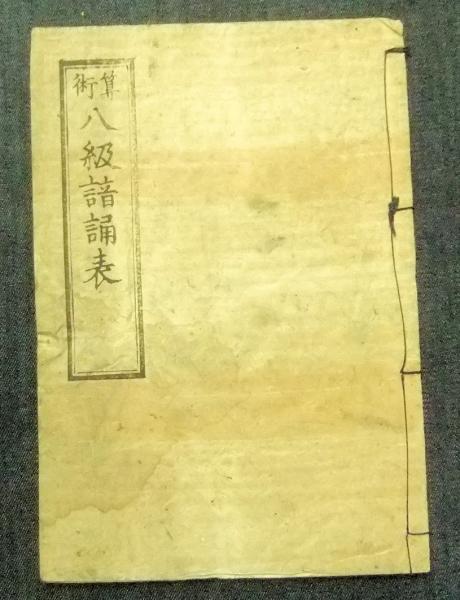 算術
八級諳誦表